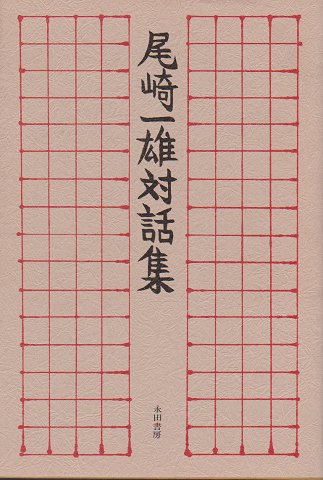 尾崎一雄対話集
永田書房